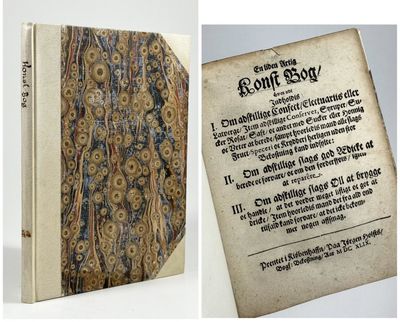 Konst Bog
En liden Artig
Konst Bog/
hvor udi
Indholdis
I. Om adskillige Confect/Electuarier eller
Latverge/ Item adskillige Conserver, Syruper, Su-
cker Rosat, Saft/ oc andet med Sucker eller Honnig
oc Peter at berede/ sampt hvorledis mand alle slags
Fruct Speceri oc Krydderi herligen uden stor
Bekostning kand indsylte:
II. Om adskillige slags god Ædicke at
berede oc forvare/ oc om den forderffvis/ igien
at reparere.
III. Om adskillige slags Øll at brygge
oc handle/ at det vorder meget liffligt oc got at
dricke/ Item hvorledis mand det fra ald ond
tilfald kand forvare/ at det icke bekom-
mer nogen affsmag.
Prentet i Kiøbenhaffn/ Paa Jørgen Holsts/
Bogf: Bekostning/ Aar M DC XLIX.